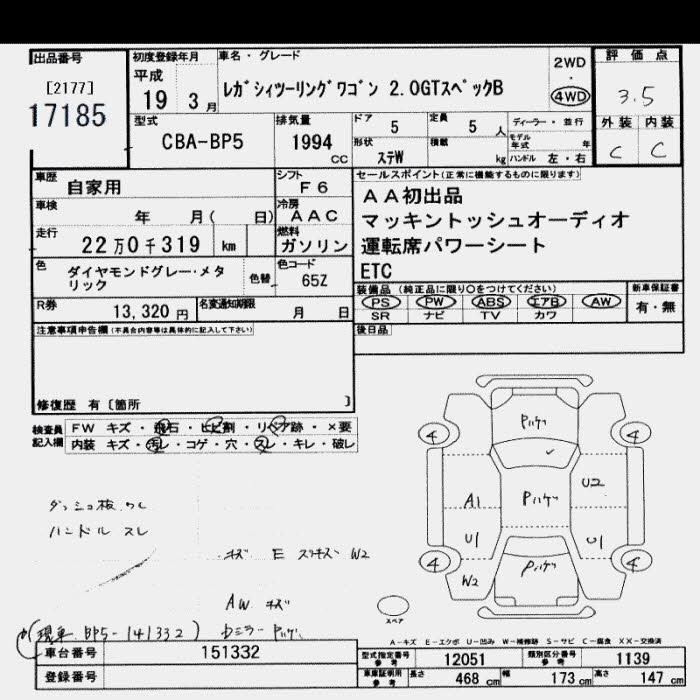 出品番号
[2177]
17185
初度登録年月
平成
19 3月
車名・グレード
レガシィツーリングワゴン 2.0GTスペックB
2WD
・
4WD
評価点
3.5
外装 内装
C C
型式
CBA-BP5
排気量
1994
CC
ドア
5
定員
5人
形状
ステW
積載
kg
ディーラー・並行
モデル年式 年
ハンドル 左・右
車歴
自家用
シフト
F6
車検
年 月( 日)
冷房
AAC
走行
22万0千319 km
燃料
ガソリン
色
ダイヤモンドグレー・メタリック
色替
色コード
65Z
R券
13,320円
名変通知期限
月 日
セールスポイント(正常に機能するものに限ります)
AA初出品
マッキントッシュオーディオ
運転席パワーシート
ETC
装備品 (純正品に限り○をつけてください)
PS PW ABS エアB AW
SR ナビ TV カワ
新車保証書
有・無
注意事項申告欄(不具合内容等は具体的に記入して下さい)
後日品
修復歴 有〔箇所 〕
検査員記入欄
FW キズ・飛石・ヒビ割・リペア跡・×要
内装 キズ・汚レ・コゲ・穴・スレ・キレ・破レ
ダッシュ板 ワレ
ハンドル スレ
キズ E スリキズ W2
AW キズ
(現車 BP5-141332)
Pハゲ
4 4
Pハゲ
A1
U2
U1
U1
Pハゲ
W2
4 4
スペア
A-キズ E-エクボ U-凹み W-補修跡 S-サビ C-腐食 XX-交換済
車台番号
151332
登録番号
型式指定番号
参考
12051
類別区分番号
参考
1139
車庫証明用
参考
長さ
468 cm
幅
173 cm
高さ
147 cm